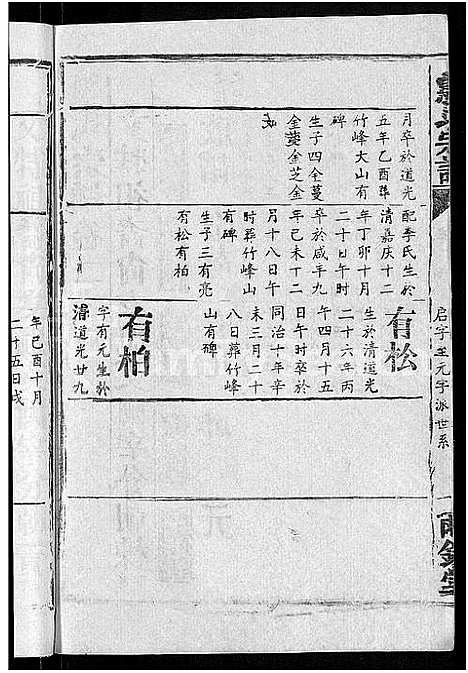 月卒於道光
五年乙酉葬
竹峰大山有
碑
生子四金蔓
金菱金芝金
配李氏生於
清嘉庆十二
年丁卯十月
二十日午时
卒於咸半九
年己未十二
月十八日午
时葬竹峰山
有碑
生子三有亮
有松有柏
有松
生於清道光
二十六年丙
午四月十五
日午时卒於
同治十年辛
未三月二十
八日葬竹峰
山有碑
有柏
字有元生於
清道光廿九
年己酉十月
二十五日戌
启字至元字派世系